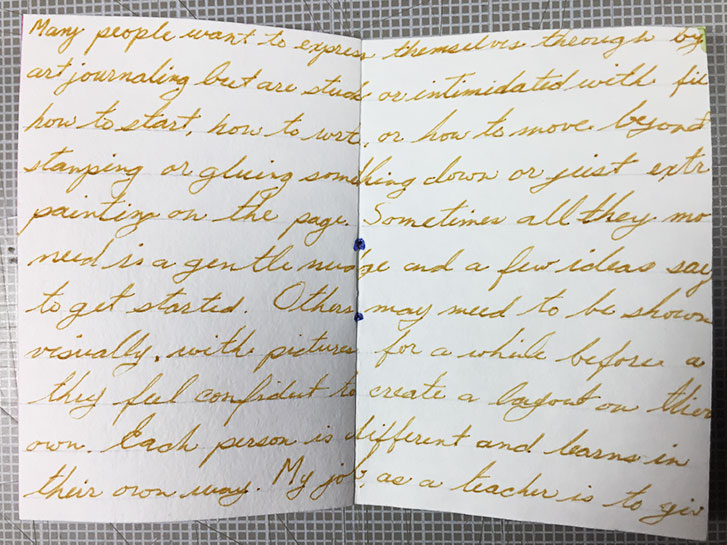 Many people want to express themselves through by
art journaling but are stuck or intimidated with fi
how to start, how to wrt, or how to move beyond
stamping or gluing something down or just extr
painting on the page. Sometimes all they mo
need is a gentle nudge and a few ideas say
to get started. Others may need to be shown
visually, with pictures for a while before a
they feel confident to create a layout on thier
own. Each person is different and learns in
their own way. My job, as a teacher is to giv